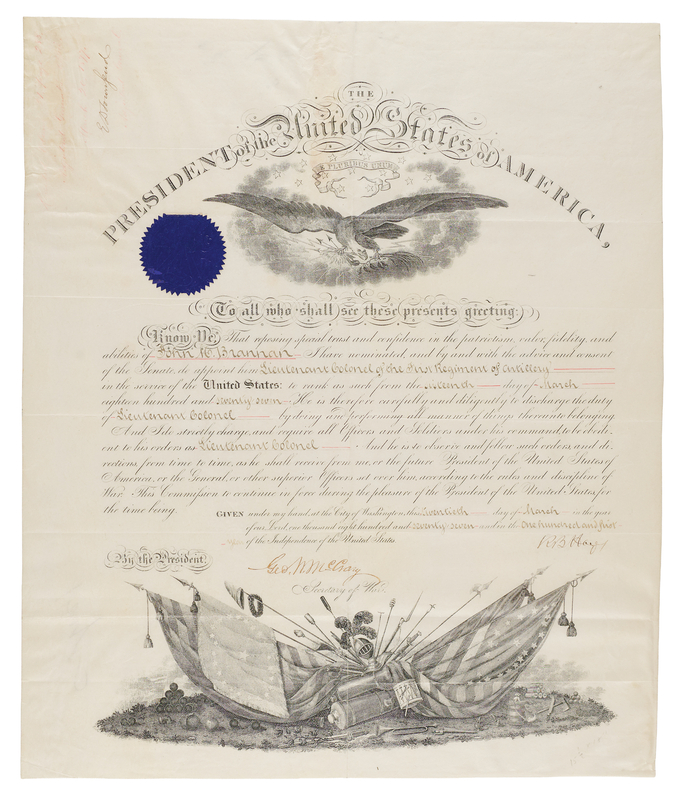 E D Townsend
THE
PRESIDENT of the United States of AMERICA,
E PLURIBUS UNUM
To all who shall see these presents greeting:
Know Ye, That reposing special trust and confidence in the patriotism, valor, fidelity, and
abilities of John M. Brannan I have nominated, and by and with the advice and consent
of the Senate, do appoint him Lieutenant Colonel of the First Regiment of Artillery
in the service of the United States: to rank as such from the day of March
eighteen hundred and seventy seven He is therefore carefully and diligently to discharge the duty
of Lieutenant Colonel by doing and performing all manner of things thereunto belonging
And I do strictly charge, and require all Officers and Soldiers under his command, to be obedi-
ent to his orders as Lieutenant Colonel And he is to observe and follow such orders, and di-
rections, from time to time, as he shall receive from me, or the future President of the United States of
America, or the General, or other superior Officers set over him, according to the rules and discipline of
War. This Commission to continue in force during the pleasure of the President of the United States, for
the time being.
GIVEN under my hand, at the City of Washington, this twentieth day of March in the year
of our Lord, one thousand eight hundred and seventy seven and in the one hundred and first
of the Independence of the United States.
R B Hayes
By the President.
Geo. W. McCrary
Secretary of War.